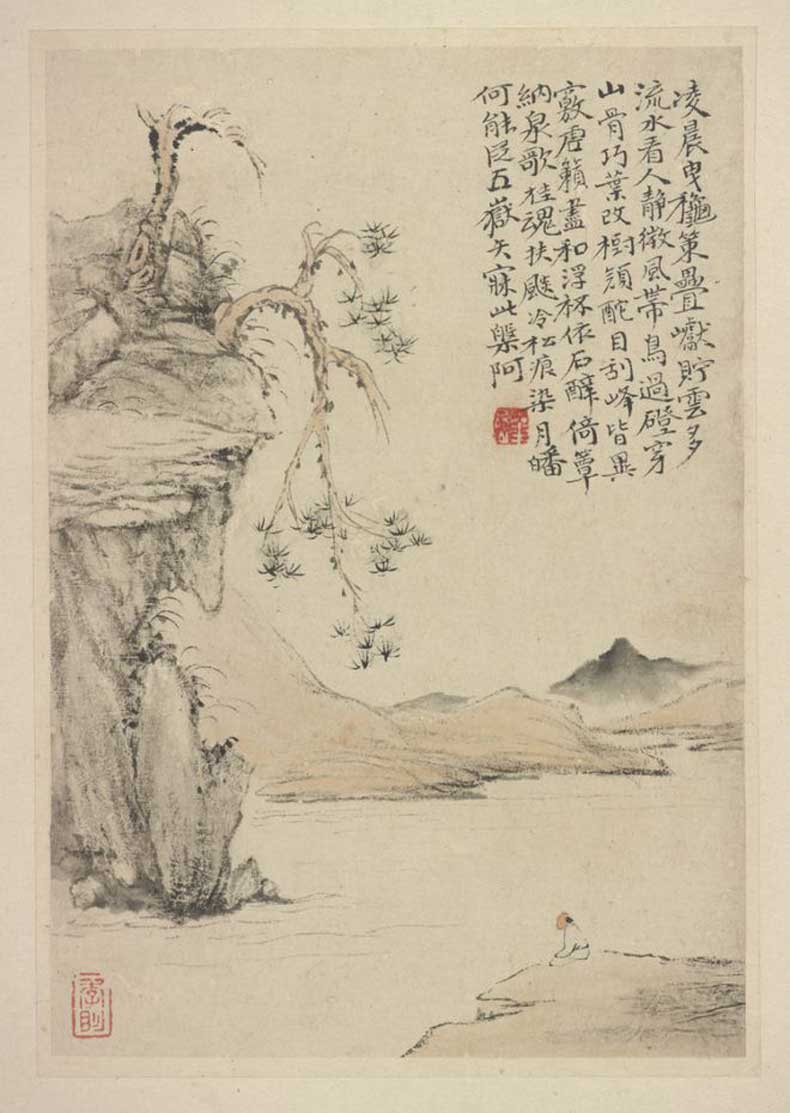 凌晨曳穐策疊巘貯雲多
流水看人靜微風帶鳥過磴穿
山骨巧葉改樹酡目刮峰皆異
竅虛籟盡和浮杯依石醉倚簟
納泉歌狂魂扶颷冷松痕染月皤
何能五嶽矢寐此槃阿